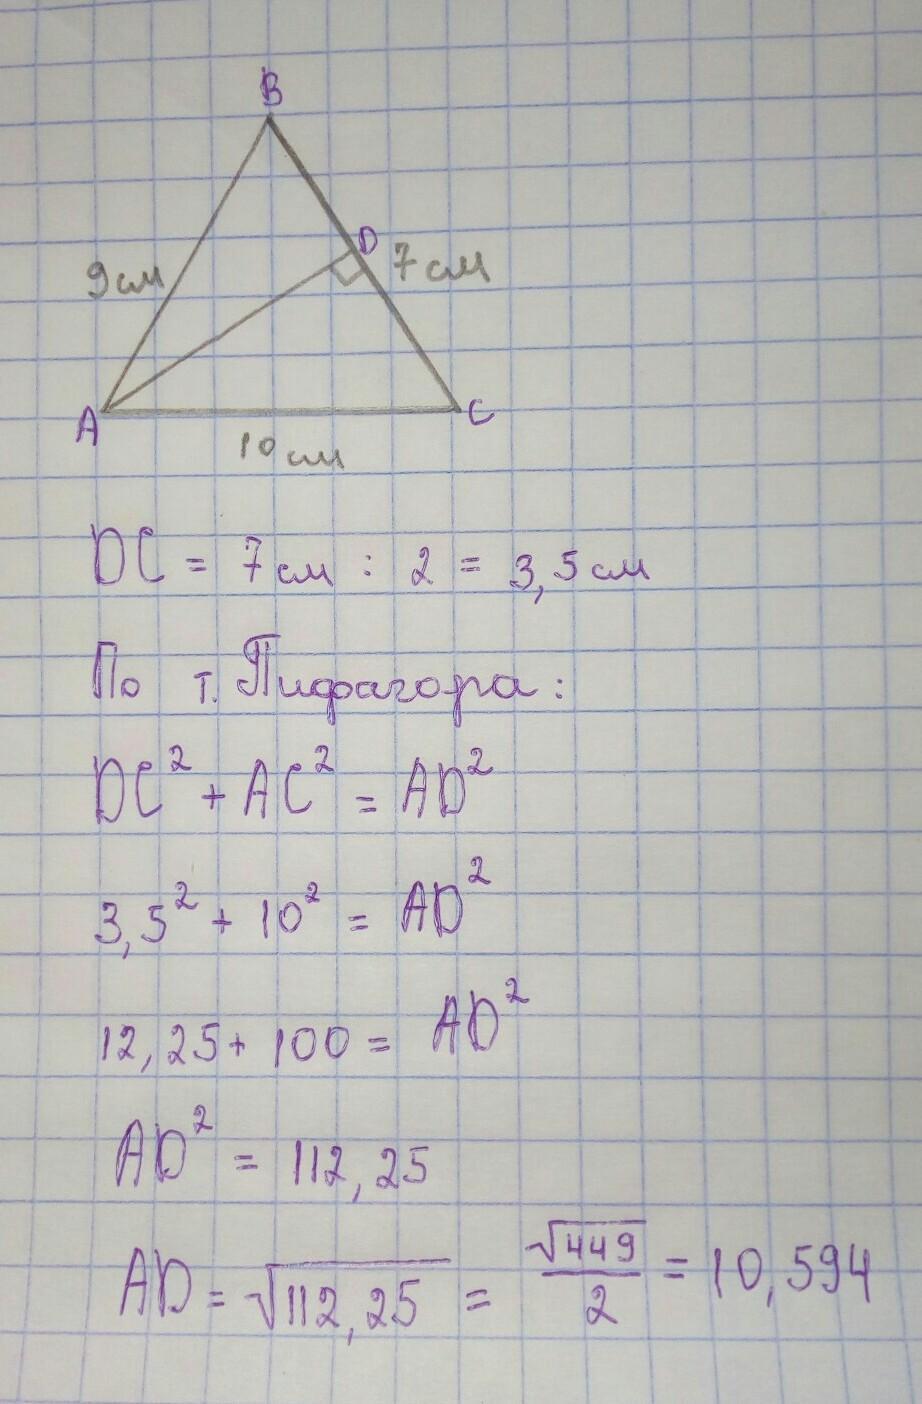 B
D
9 см
7 см
A
C
10 см
DC = 7 см : 2 = 3,5 см
По т. Пифагора:
DC² + AC² = AD²
3,5² + 10² = AD²
12,25 + 100 = AD²
AD² = 112,25
AD = √112,25 = √449/2 = 10,594